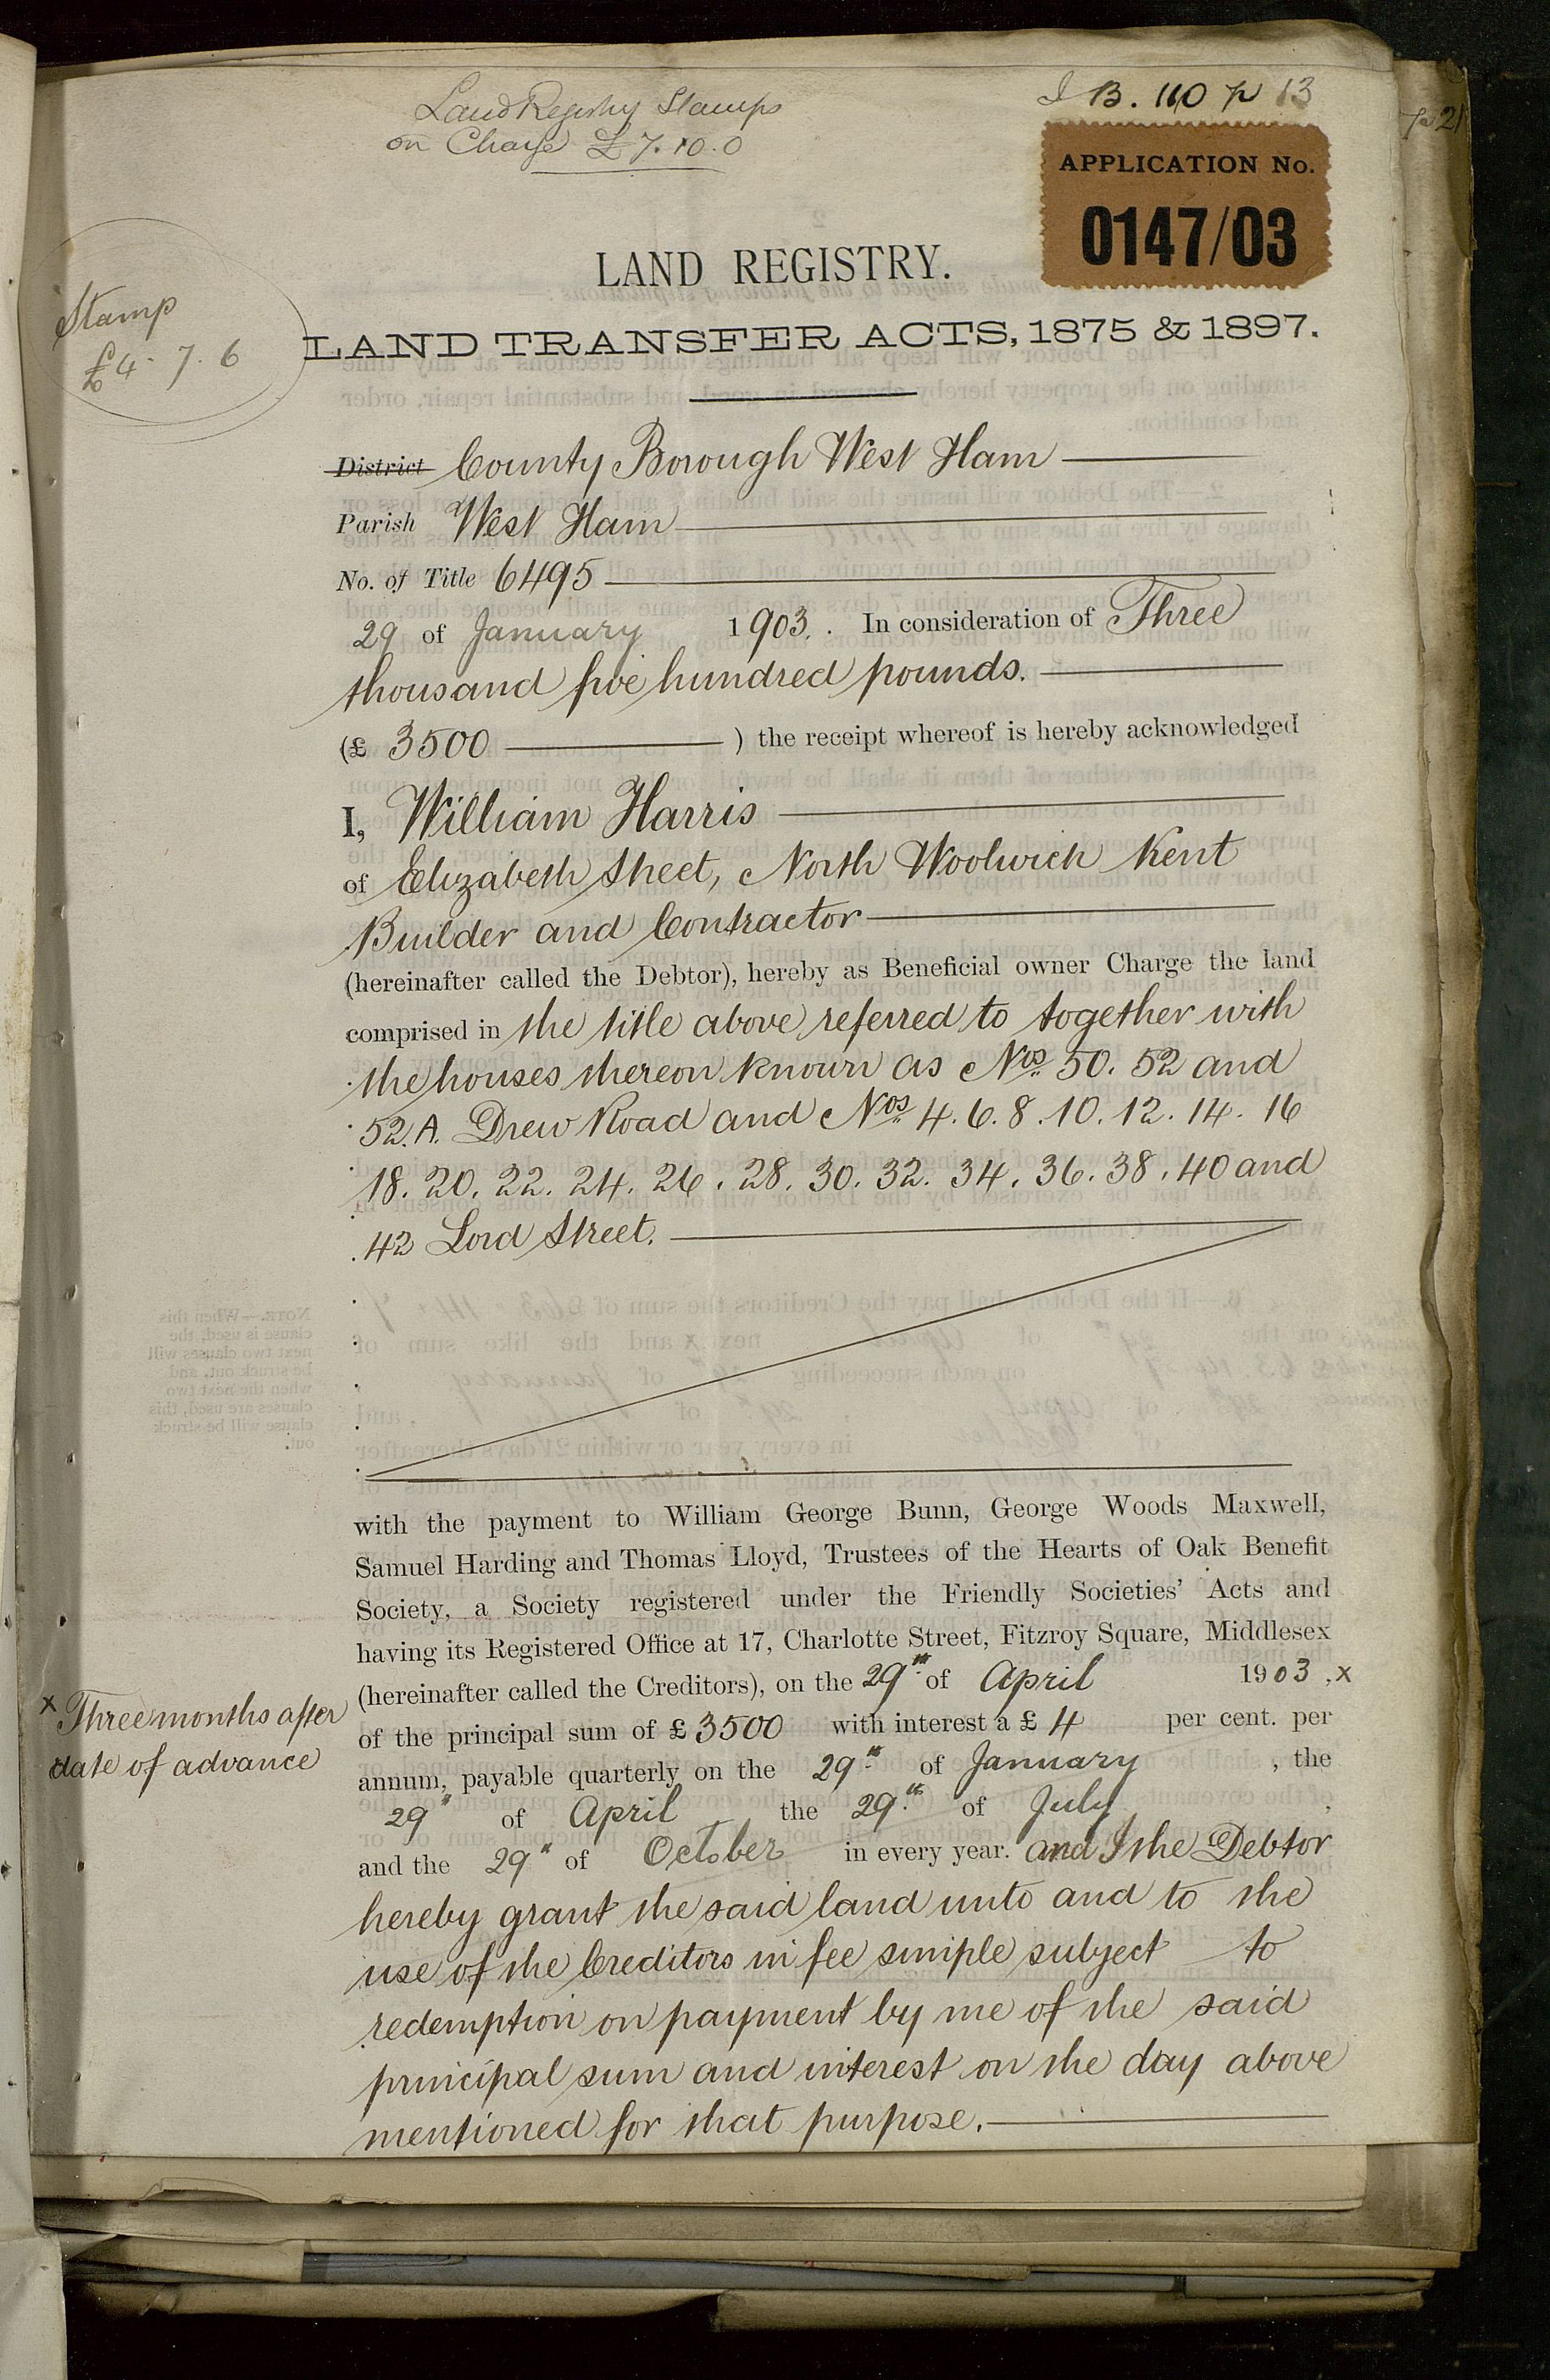 Land Registry Stamps
on Charge £7.10.0
I B. 110 p 13
p 21
APPLICATION No.
0147/03
Stamp
£4. 7. 6
LAND REGISTRY.
LAND TRANSFER ACTS, 1875 & 1897.
District County Borough West Ham
Parish West Ham
No. of Title 6495
29 of January 1903. In consideration of Three
thousand five hundred pounds.
(£ 3500 ) the receipt whereof is hereby acknowledged
I, William Harris
of Elizabeth Street, North Woolwich Kent
Builder and Contractor
(hereinafter called the Debtor), hereby as Beneficial owner Charge the land
comprised in the title above referred to together with
the houses thereon known as Nos. 50. 52 and
52.A. Drew Road and Nos. 4. 6. 8. 10. 12. 14. 16
18. 20. 22. 24. 26. 28. 30. 32. 34. 36. 38. 40 and
42 Lord Street.
with the payment to William George Bunn, George Woods Maxwell,
Samuel Harding and Thomas Lloyd, Trustees of the Hearts of Oak Benefit
Society, a Society registered under the Friendly Societies' Acts and
having its Registered Office at 17, Charlotte Street, Fitzroy Square, Middlesex
(hereinafter called the Creditors), on the 29th of April 1903, x
x Three months after
date of advance
of the principal sum of £3500 with interest a £ 4 per cent. per
annum, payable quarterly on the 29th of January , the
29" of April the 29th of July,
and the 29" of October in every year. and I the Debtor
hereby grant the said land unto and to the
use of the Creditors in fee simple subject to
redemption on payment by me of the said
principal sum and interest on the day above
mentioned for that purpose.